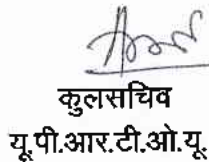 कुलसचिव
यू.पी.आर.टी.ओ.यू.